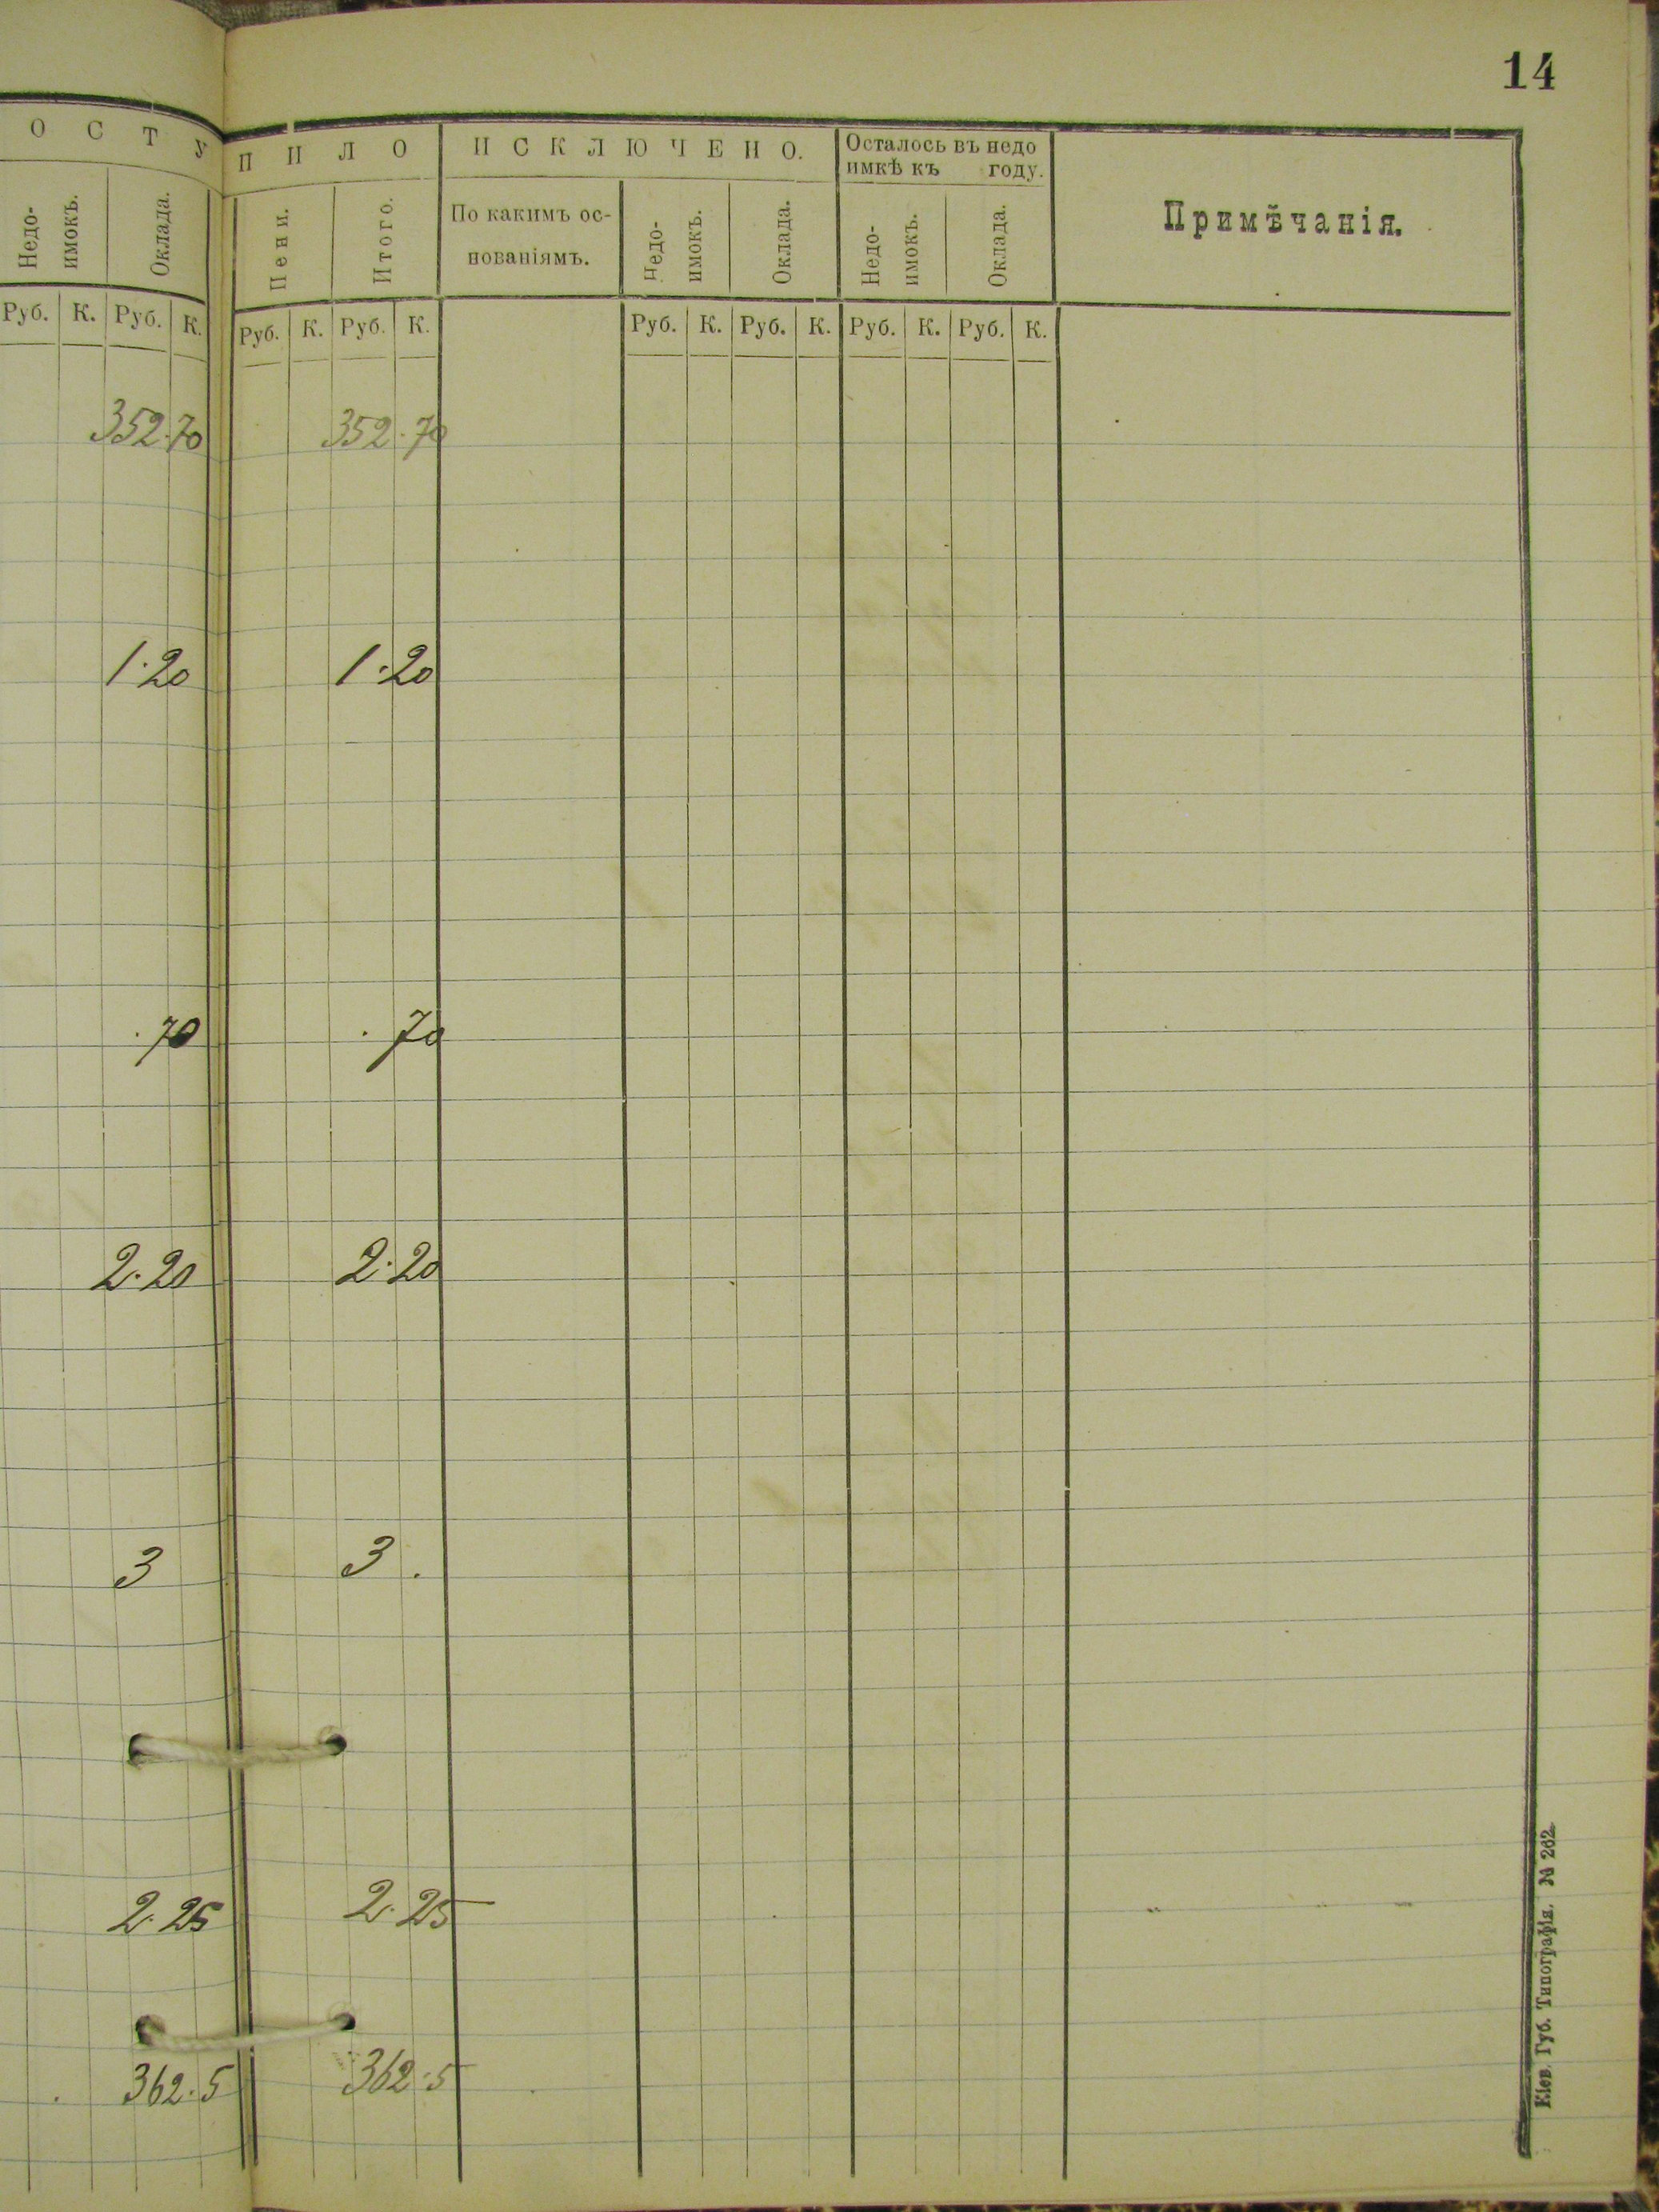 14
О С Т У П И Л О И С К Л Ю Ч Е Н О. Осталось въ недо
имкѣ къ году.
Недо-
имокъ. Оклада. Пени. Итого. По какимъ ос-
нованіямъ. Недо-
имокъ. Оклада. Недо-
имокъ. Оклада. Примѣчанія.
Руб. К. Руб. К. Руб. К. Руб. К. Руб. К. Руб. К. Руб. К. Руб. К.
352.70 352.70
1.20 1.20
.70 .70
2.20 2.20
3 3.
2.25 2.25
362.5 362.5
Кіев. Губ. Типографія. № 262.